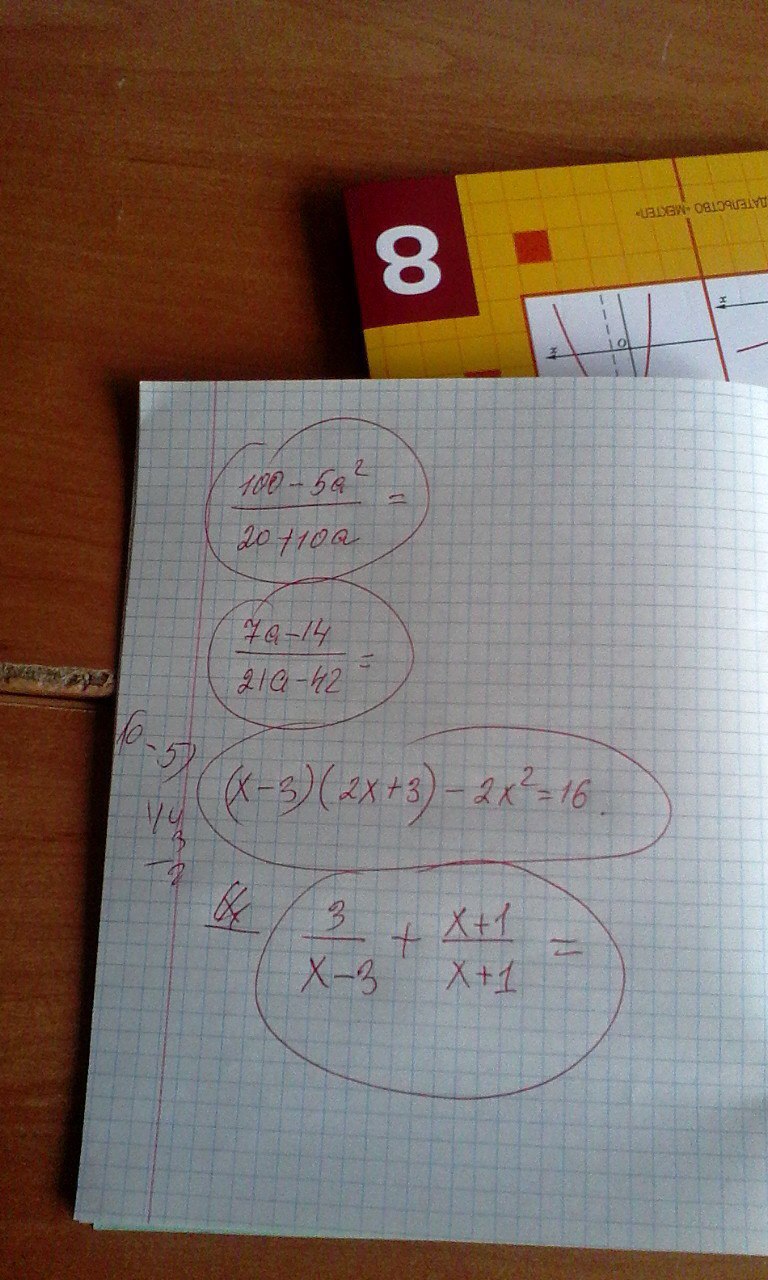 8
ДАТЕЛЬСТВО «МЕКТЕП»
x
O
x
100 - 5a²
20 + 10a
=
7a - 14
21a - 42
=
(x - 3)(2x + 3) - 2x² = 16.
3
x - 3
+
x + 1
x + 1
=